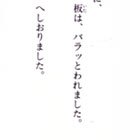 に、
板は、バラッとわれました。
へしおりました。